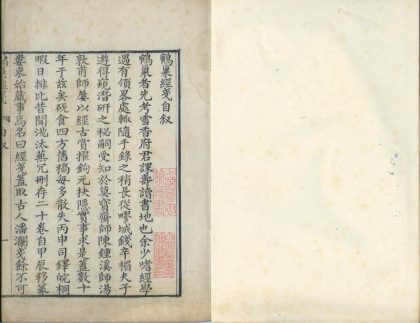 鶴巢經箋自叙
鶴巢者先考雪香府君課壽讀書地也余少嗜經學
遇有領畧處輒隨手錄之稍長從嘐城錢辛楣夫子
遊得窺潛研之秘嗣受知於冀寶齋師陳鍾溪師湯
敦甫師屢以經古賞擢鉤元抉隱實事求是蓋數十
年于兹矣硯食四方舊稿每多散失丙申司鐸皖桐
暇日排比昔聞洮汰蕪冗刪存二十卷自甲辰移篆
婁東始蕆事焉名曰經箋蓋取古人潘瀾戔餘不可